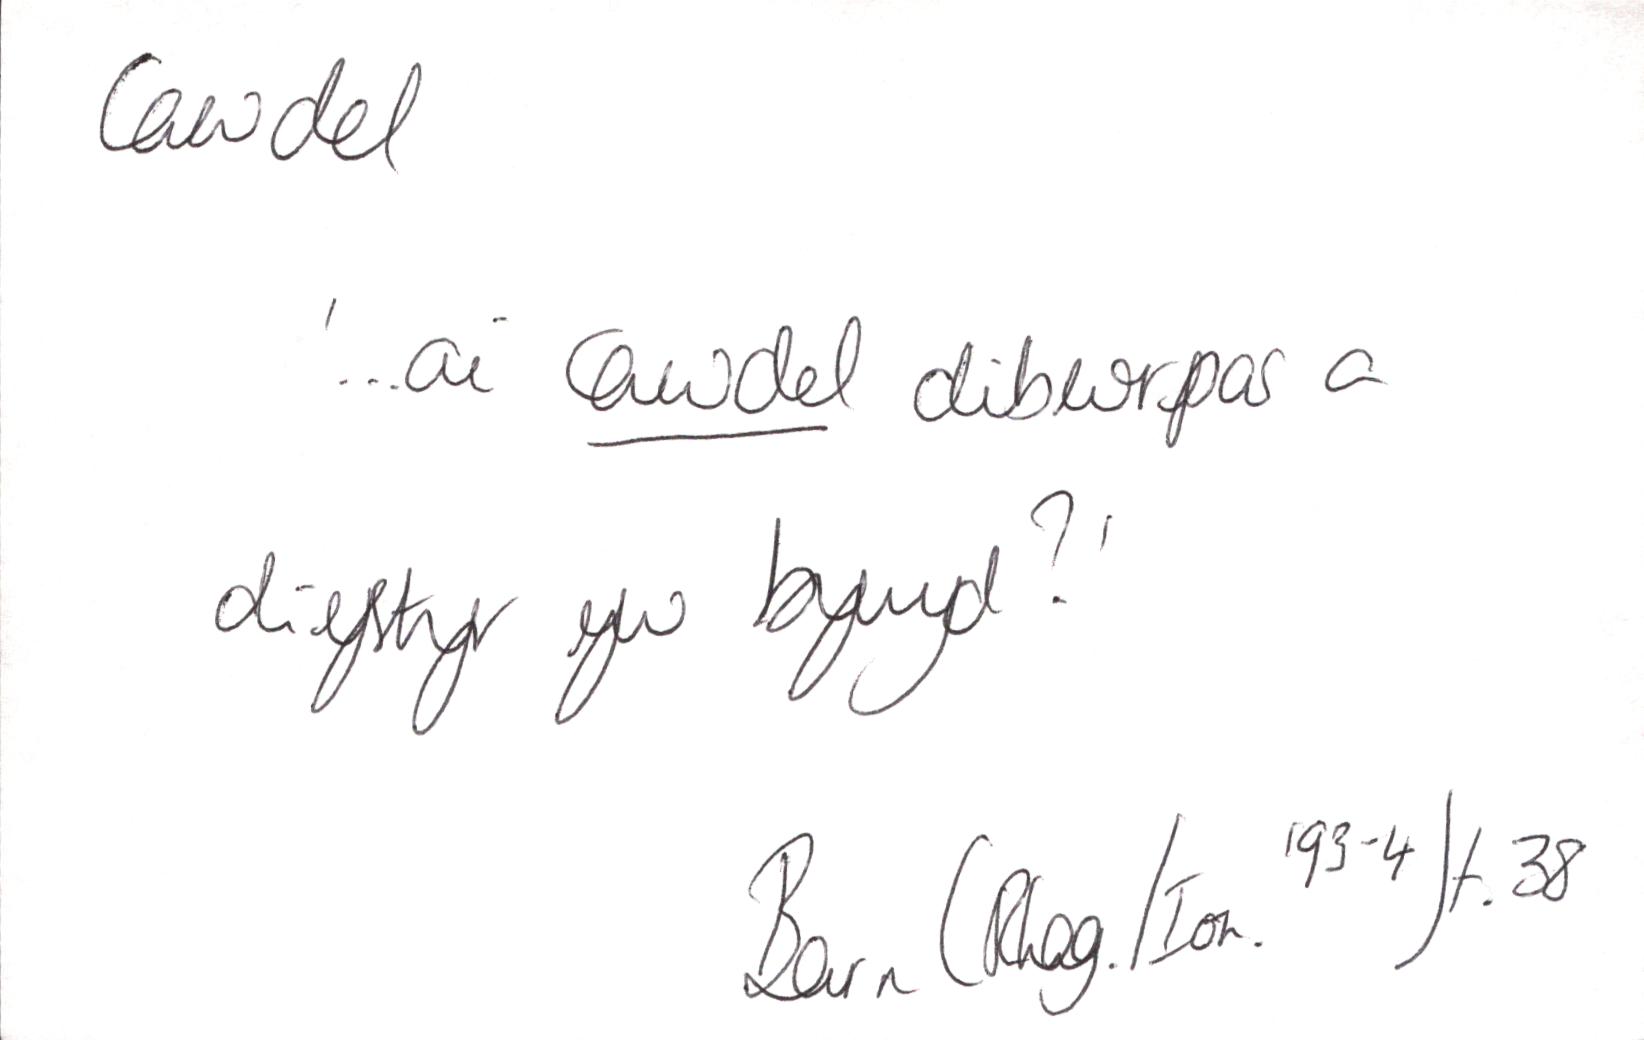 Cawdel
'...ai cawdel dibwrpas a
diystyr yw bywyd?'
Barn (Rhag./Ion. '93-4) t. 38